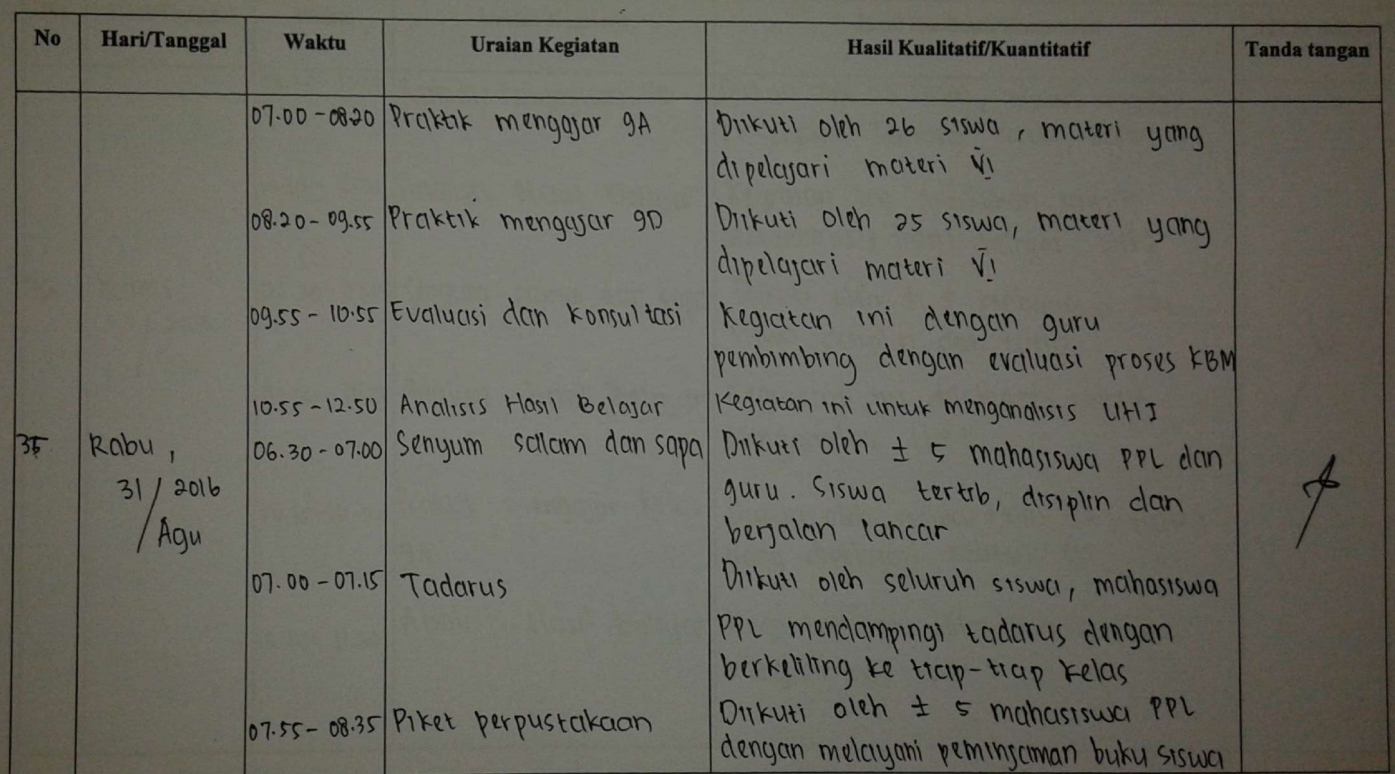 No Hari/Tanggal Waktu Uraian Kegiatan Hasil Kualitatif/Kuantitatif Tanda tangan
07.00 - 08.20 Praktik mengajar 9A Diikuti oleh 26 siswa, materi yang
dipelajari materi VI
08.20 - 09.55 Praktik mengajar 9D Diikuti oleh 25 siswa, materi yang
dipelajari materi VI
09.55 - 10.55 Evaluasi dan konsultasi Kegiatan ini dengan guru
pembimbing dengan evaluasi proses KBM
10.55 - 12.50 Analisis Hasil Belajar Kegiatan ini untuk menganalisis UH I
Rabu, 06.30 - 07.00 Senyum salam dan sapa Diikuti oleh ± 5 mahasiswa PPL dan
31/2016 guru. Siswa tertib, disiplin dan
Agu berjalan lancar
07.00 - 07.15 Tadarus Diikuti oleh seluruh siswa, mahasiswa
PPL mendampingi tadarus dengan
berkeliling ke tiap-tiap kelas
07.55 - 08.35 Piket perpustakaan Diikuti oleh ± 5 mahasiswa PPL
dengan melayani peminjaman buku siswa